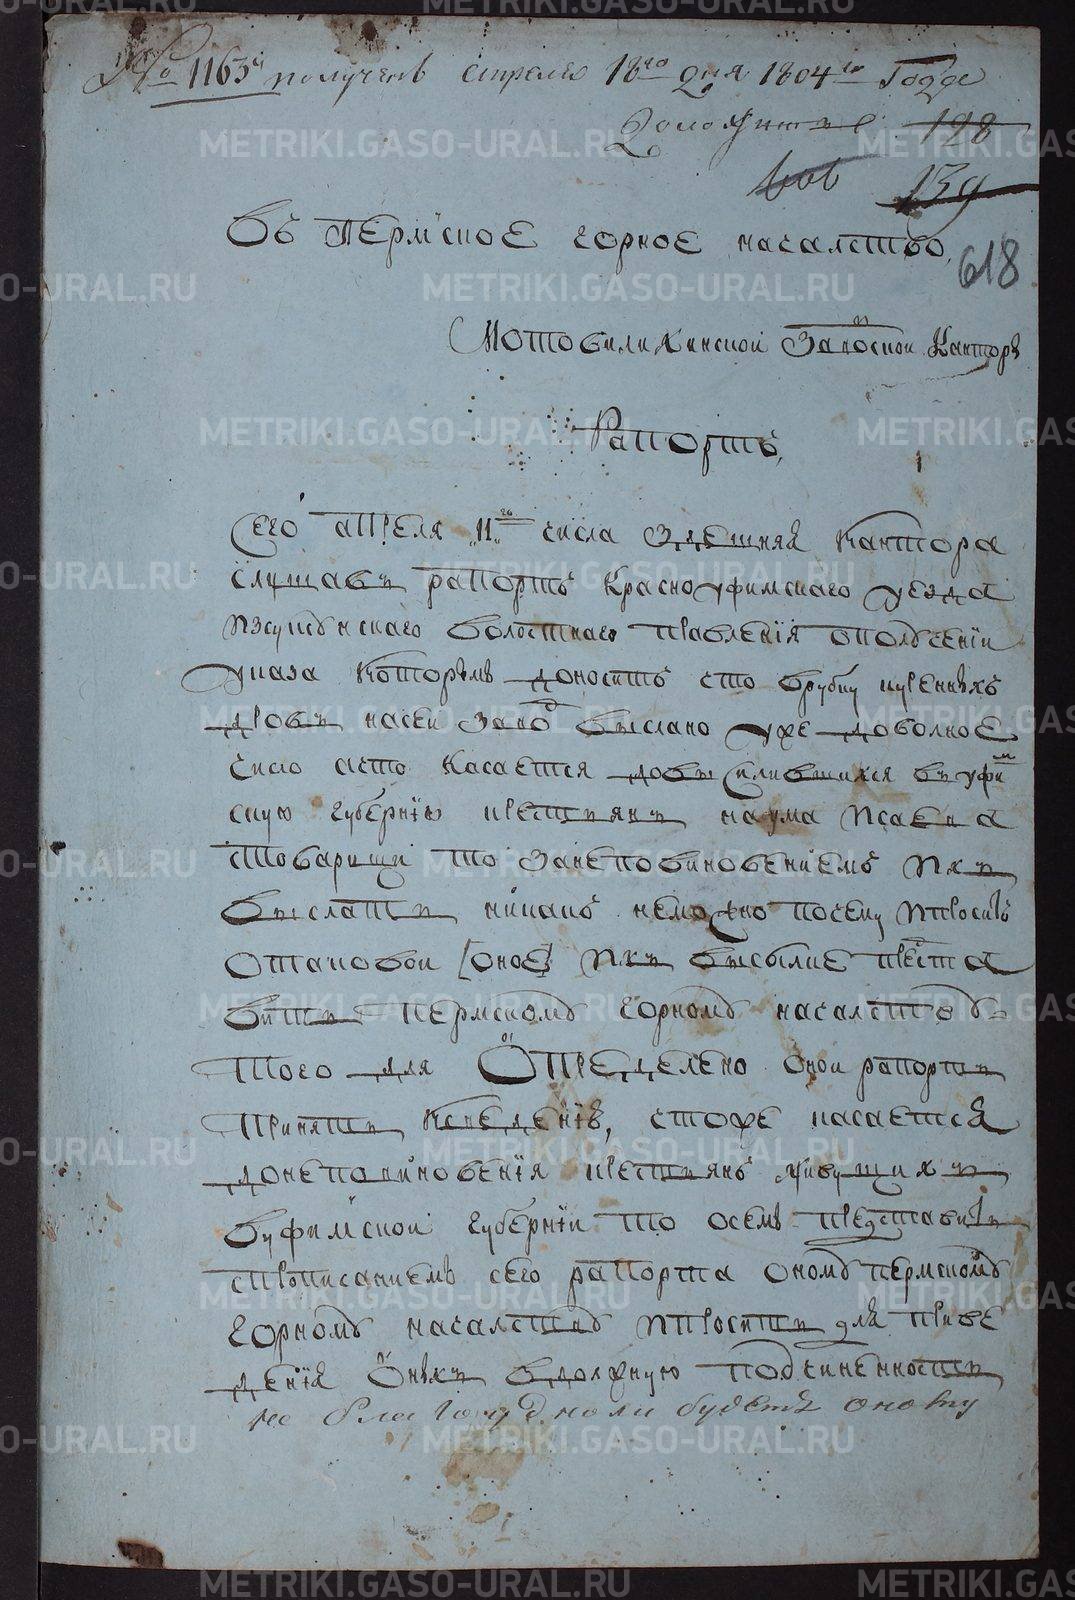 № 1163й получено апреля 18го дня 1804го Года
Доложитъ 128
139
618
Въ Пермское горное началство,
Мотовилихинской Заводской Канторы
Рапортъ,
Сего апреля „11го числа Здешняя Кантора
слушавъ рапортъ Красноуфимскаго уезда
волостнаго правления ополучении
указа Которымъ доноситъ что врубку куренныхъ
дровъ насей Заводъ выслано уже доволное
число ачто Касается до въ уфим
скую губернїю крестьянъ наума Исаева
стоварищи то Занеповиновениемъ ихъ
выслать никакъ неможно почему ипроситъ
отаковой [оное] ихъ высылке преста
вить Пермскому горному началству
Того для Определено оной рапортъ
принять Ксведению, чтоже касается
донеповиновения крестьянъ живущихъ
вуфимской губернїи то осемъ представить
спрописаниемъ сего рапорта оному Пермскому
горному началству ипросить для приве
дения Оныхъ вдолжную подчиненность
не благоугодноли будетъ оному